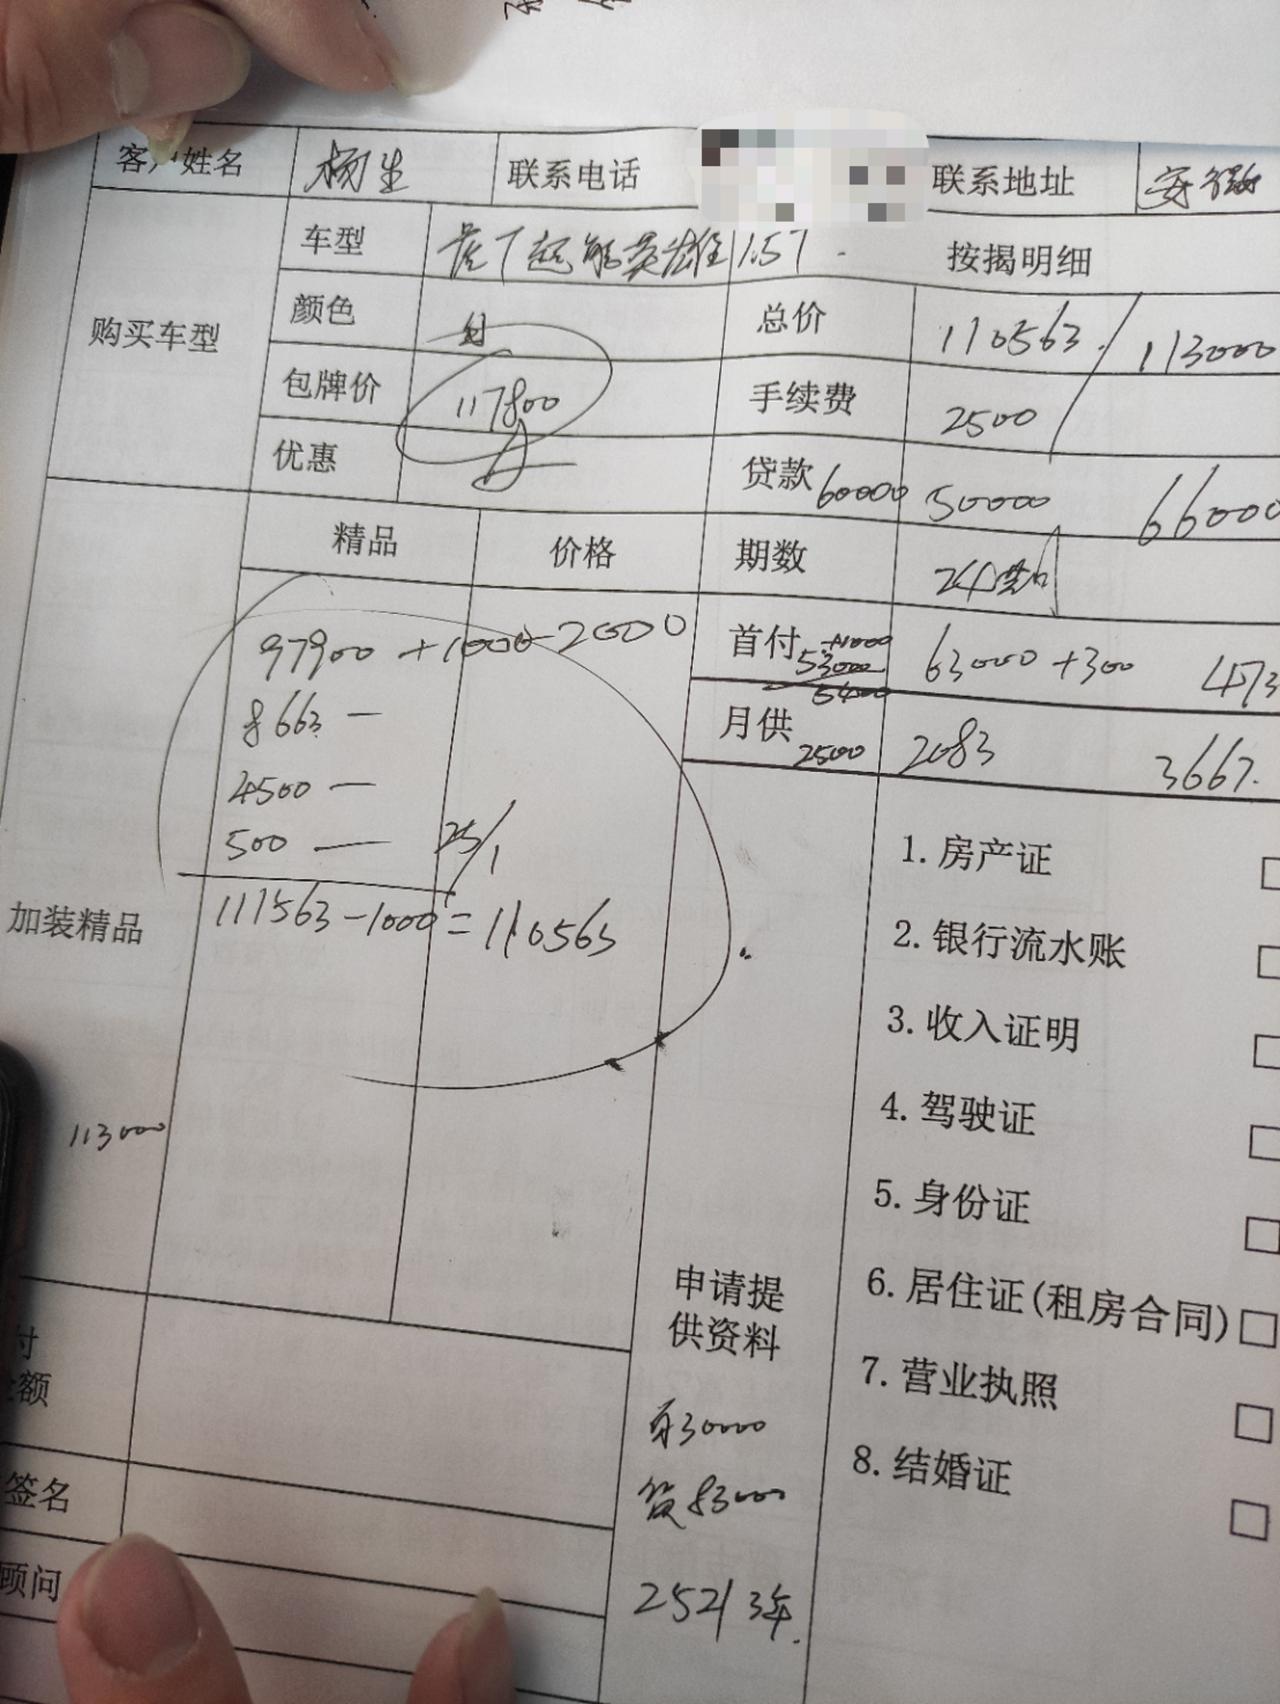 客户姓名 杨生 联系电话 联系地址 安徽
购买车型
车型 1.5T
按揭明细
颜色 白
总价 110563 / 113000
包牌价 117800
手续费 2500
优惠
贷款 60000 50000 66000
精品 价格
期数 24期
首付 +1000 53000 5400 63000 +300 473
月供 2500 2083 3667.
加装精品
97900 +1000-2000
8663 —
4500 —
500 — 25/1
111563-1000=110563
113000
申请提
供资料
1.房产证
2.银行流水账
3.收入证明
4.驾驶证
5.身份证
6.居住证(租房合同)
7.营业执照
8.结婚证
付
额
签名
顾问
30000
贷83000
2521 3年.